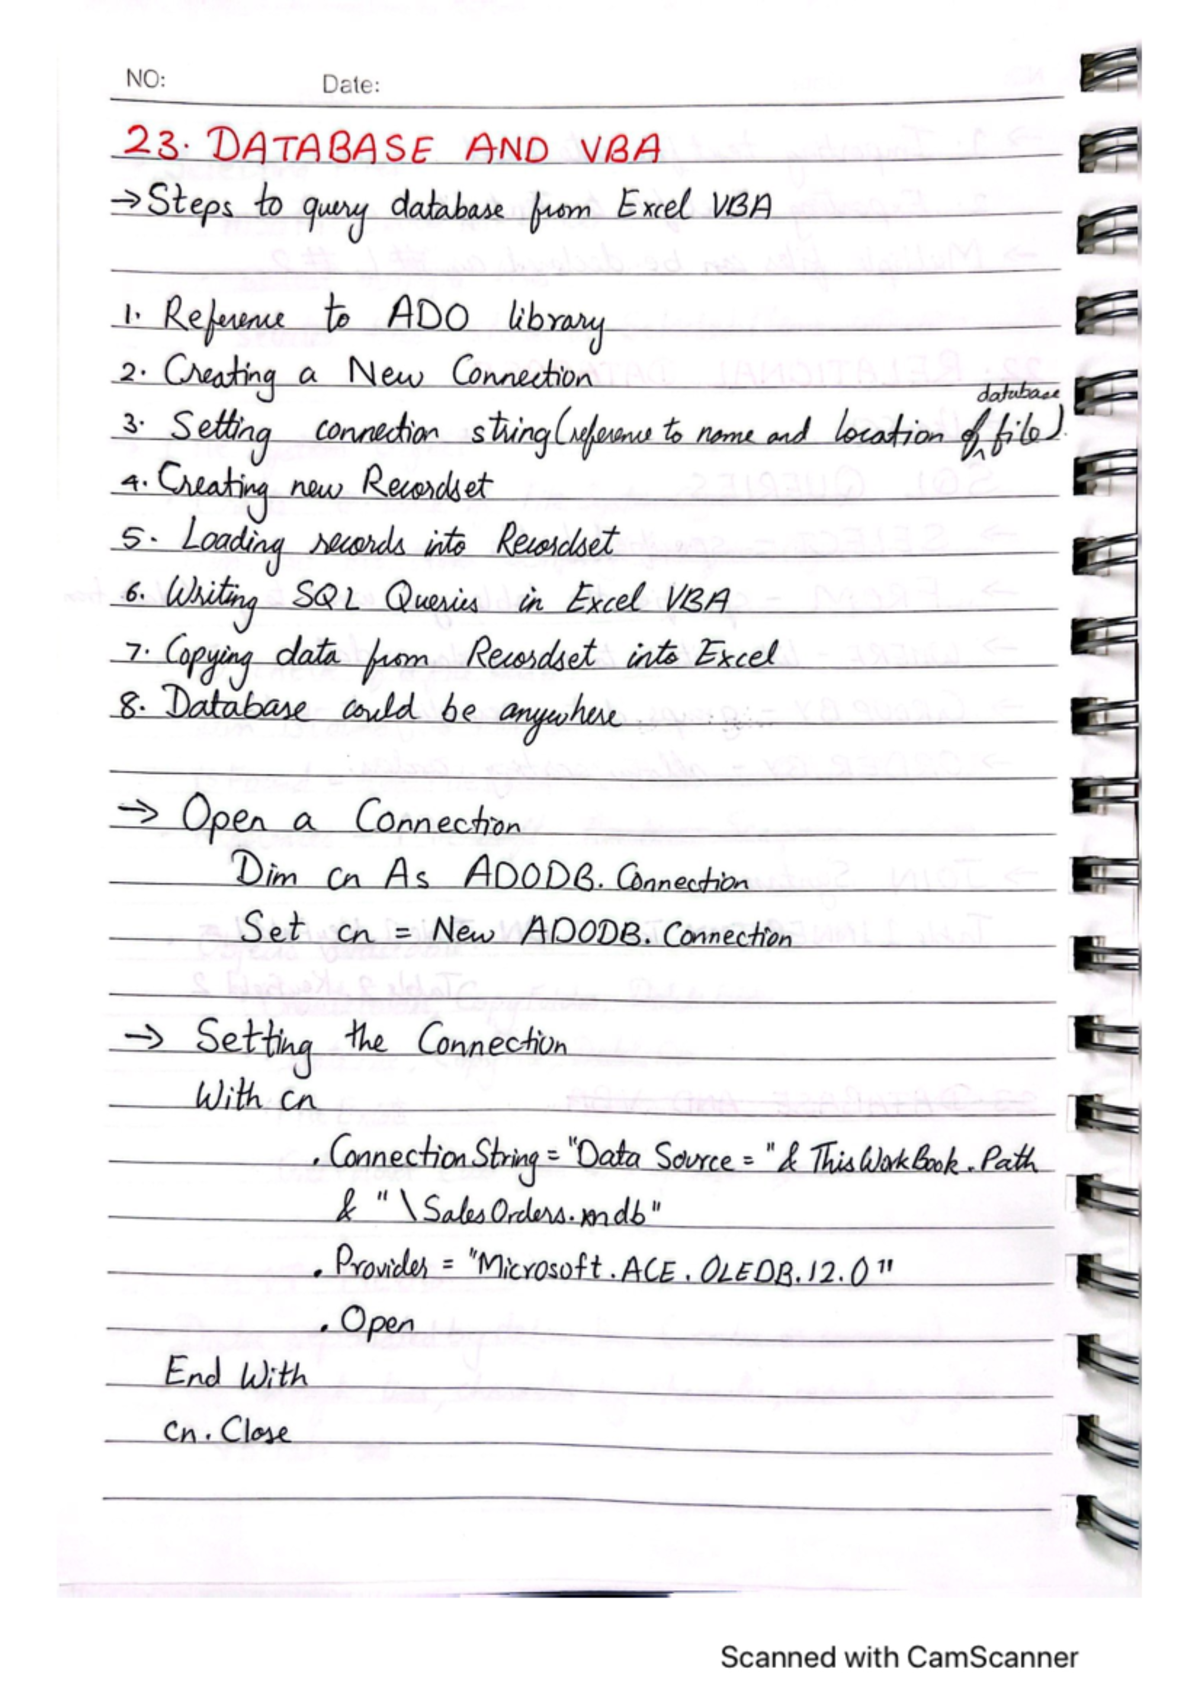 NO: Date:
23. DATABASE AND VBA
→ Steps to query database from Excel VBA
1. Reference to ADO library
2. Creating a New Connection
database
3. Setting connection string (reference to name and location of ^ file).
4. Creating new Recordset
5. Loading records into Recordset
6. Writing SQL Queries in Excel VBA
7. Copying data from Recordset into Excel
8. Database could be anywhere
→ Open a Connection
Dim cn As ADODB. Connection
Set cn = New ADODB. Connection
→ Setting the Connection
With cn
. ConnectionString = "Data Source = " & ThisWorkBook. Path
& " \ SalesOrders.mdb"
. Provider = "Microsoft. ACE. OLEDB. 12.0"
. Open
End With
cn. Close
Scanned with CamScanner